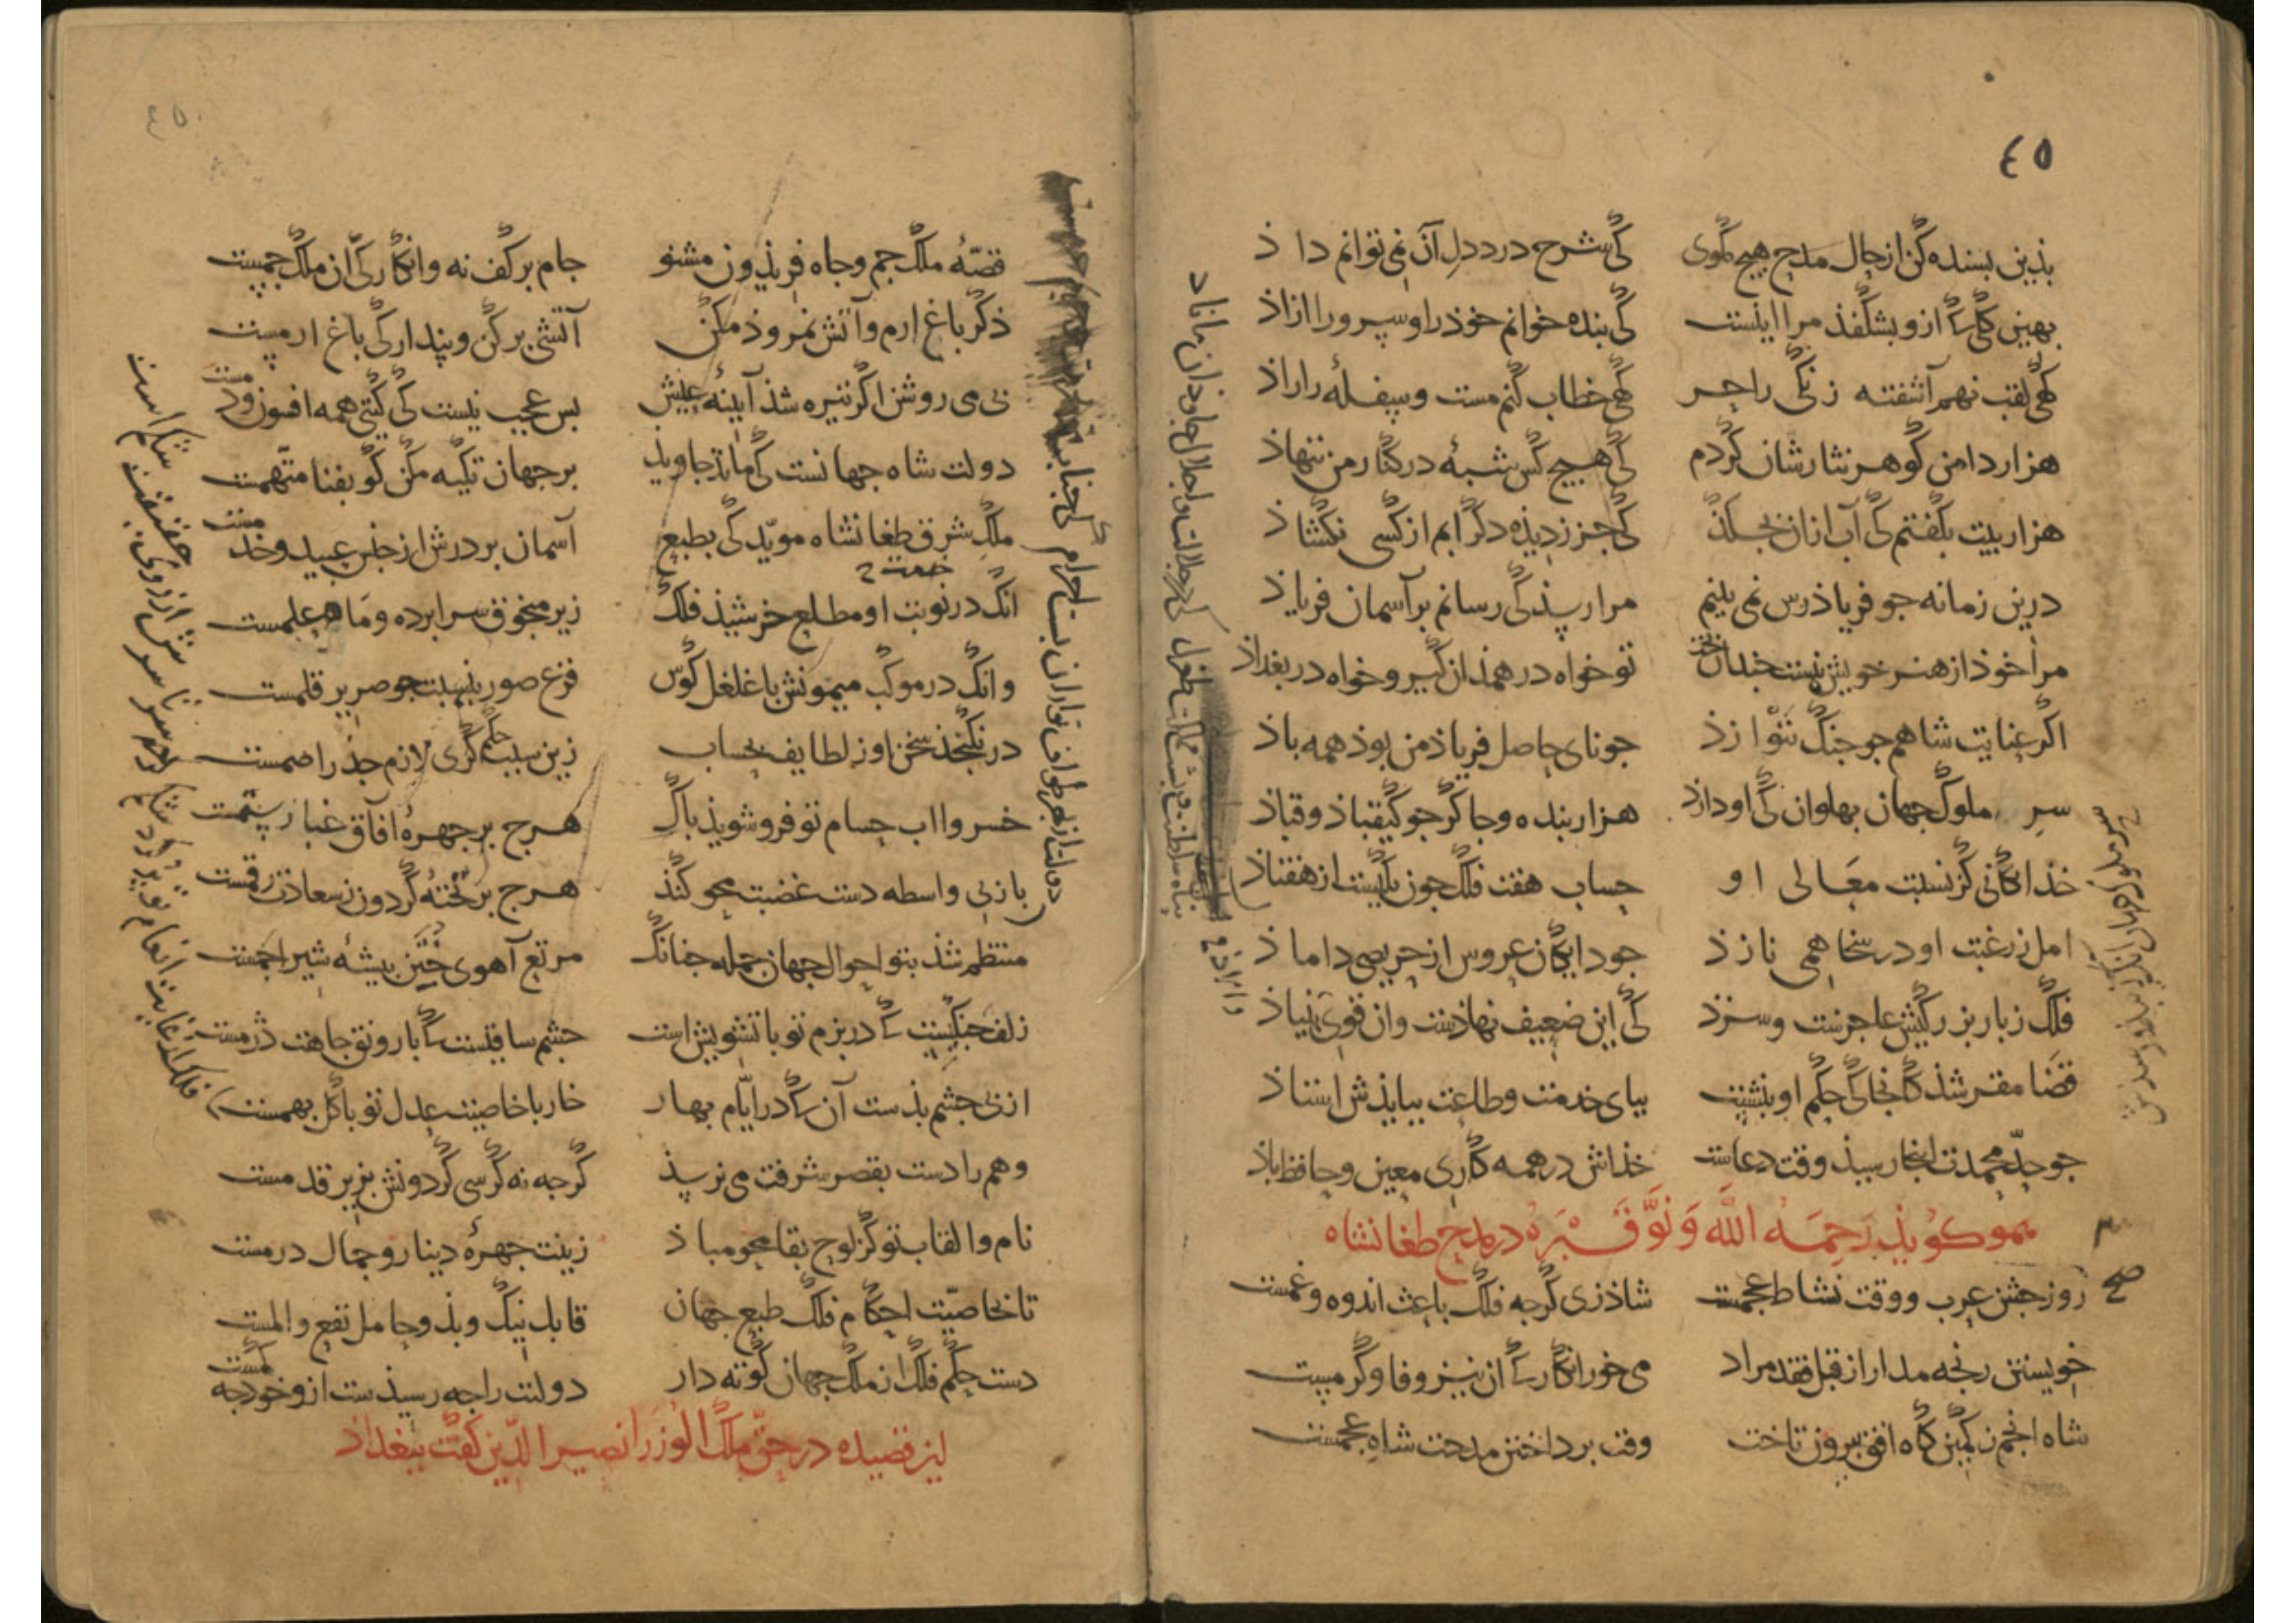 ٤٥
بذین بسنده کن از حال مدح هیچ مگوی کی شرح درد دل آن نمی توانم داذ
بهین گلی کی ازو بشگفذ مرا اینست کی بنده خوانم خوذ را و سرو را ازاذ
گهی لقب نهم آشفته زنگی را حر گهی خطاب کنم مست و سفله را راذ
هزار دامن گوهر نثارشان کردم کی هیچ کس شبهٔ در کنار من ننهاذ
هزار بیت بگفتم کی آب ازان بجکذ کی جز زدیذه دگر ابم از کسی نگشاذ
درین زمانه جو فریاذرس نمی بینم مرا رسذ کی رسانم بر آسمان فریاذ
مرا خوذ از هنر خویش نیست جندان تو خواه در همذان گیر و خواه در بغداذ
اگر عنایت شاهم جو جنگ ننوازذ جو نای حاصل فریاذ من بوذ همه باذ
سر ملوک جهان بهلوان کی او دارذ هزار بنده و جاکر جو کیقباذ و قباذ
خذایگانی کز نسبت معالی او حساب هفت فلک جون یکیست از هفتاذ
امل ز رغبت او در سخا همی نازذ جو دایگان عروس از حریصی داماذ
فلک ز بار بزرگیش عاجزست و سزذ کی این ضعیف نهاذست وان قوی بنیاذ
قضا مقر شذ کانجا کی حکم او بنشست ببای خدمت و طاعت ببایذش استاذ
جو حد محمدت اینجا رسیذ وقت دعاست خذاش در همه کاری معین و حافظ باذ
هموکویذ رحمه الله و نور قبره در مدح طغانشاه
روز جشن عرب و وقت نشاط عجمست شاذ زی گرجه فلک باعث اندوه و غمست
خویستن رنجه مدار از قبل فقد مراد می خور انگار کی ان نیز وفا و کرمست
شاه انجم ز کمین کاه افق بیرون تاخت وقت برداختن مدحت شاه عجمست
قصهٔ ملک جم و جاه فریذون مشنو جام بر کف نه و انگار کی ان ملک جمست
ذکر باغ ارم و آتش نمروذ مکن آتشی بر کن و بندار کی باغ ارمست
بی می روشن اگر تیره شذ آینهٔ عیش بس عجب نیست کی گیتی همه افسون و دمست
دولت شاه جهانست کی ماند جاویذ بر جهان تکیه مکن کو بفنا متهمست
ملک شرق طغانشاه موید کی بطبع آسمان بر درش از جنس عبید و خدمست
انک در نوبت او مطلع خرشیذ فلک زیر منجوق سرابرده و ماه علمست
وانک در موکب میمونش با غلغل کوس فزع صور بنسبت جو صریر قلمست
در نگنجذ سخن او ز لطایف بحساب زین سبب حکم کری لازم جذر اصمست
خسروا اب حسام تو فرو شویذ باک هرج بر جهرهٔ آفاق غبار ستمست
باز بی واسطه دست غضبت محو کنذ هرج بر تختهٔ گردون ز سعادت رقمست
منتظم شذ بتو احوال جهان جمله جنانک مرتع آهوی ختن بیشهٔ شیر اجمست
زلف جنگیست کی در بزم تو با تشویش است جشم ساقیست کی با رونق جاهت دژمست
از بی جشم بذست آن کی در ایام بهار خار با خاصیت عدل تو با گل بهمست
وهم را دست بقصر شرفت می نرسذ گرجه نه کرسی گردونش بزیر قدمست
نام و القاب تو کز لوح بقا محو مباذ زینت جهرهٔ دینار و جمال درمست
تا بخاصیت احکام فلک طبع جهان قابل نیک و بذ و حامل نفع و المست
دست حکم فلک از ملک جهان کوته دار دولتت را جه رسیذست ازو خوذ جه کمست
این قصیده در حق ملک الوزرا نصیر الدین کفت ببغداد